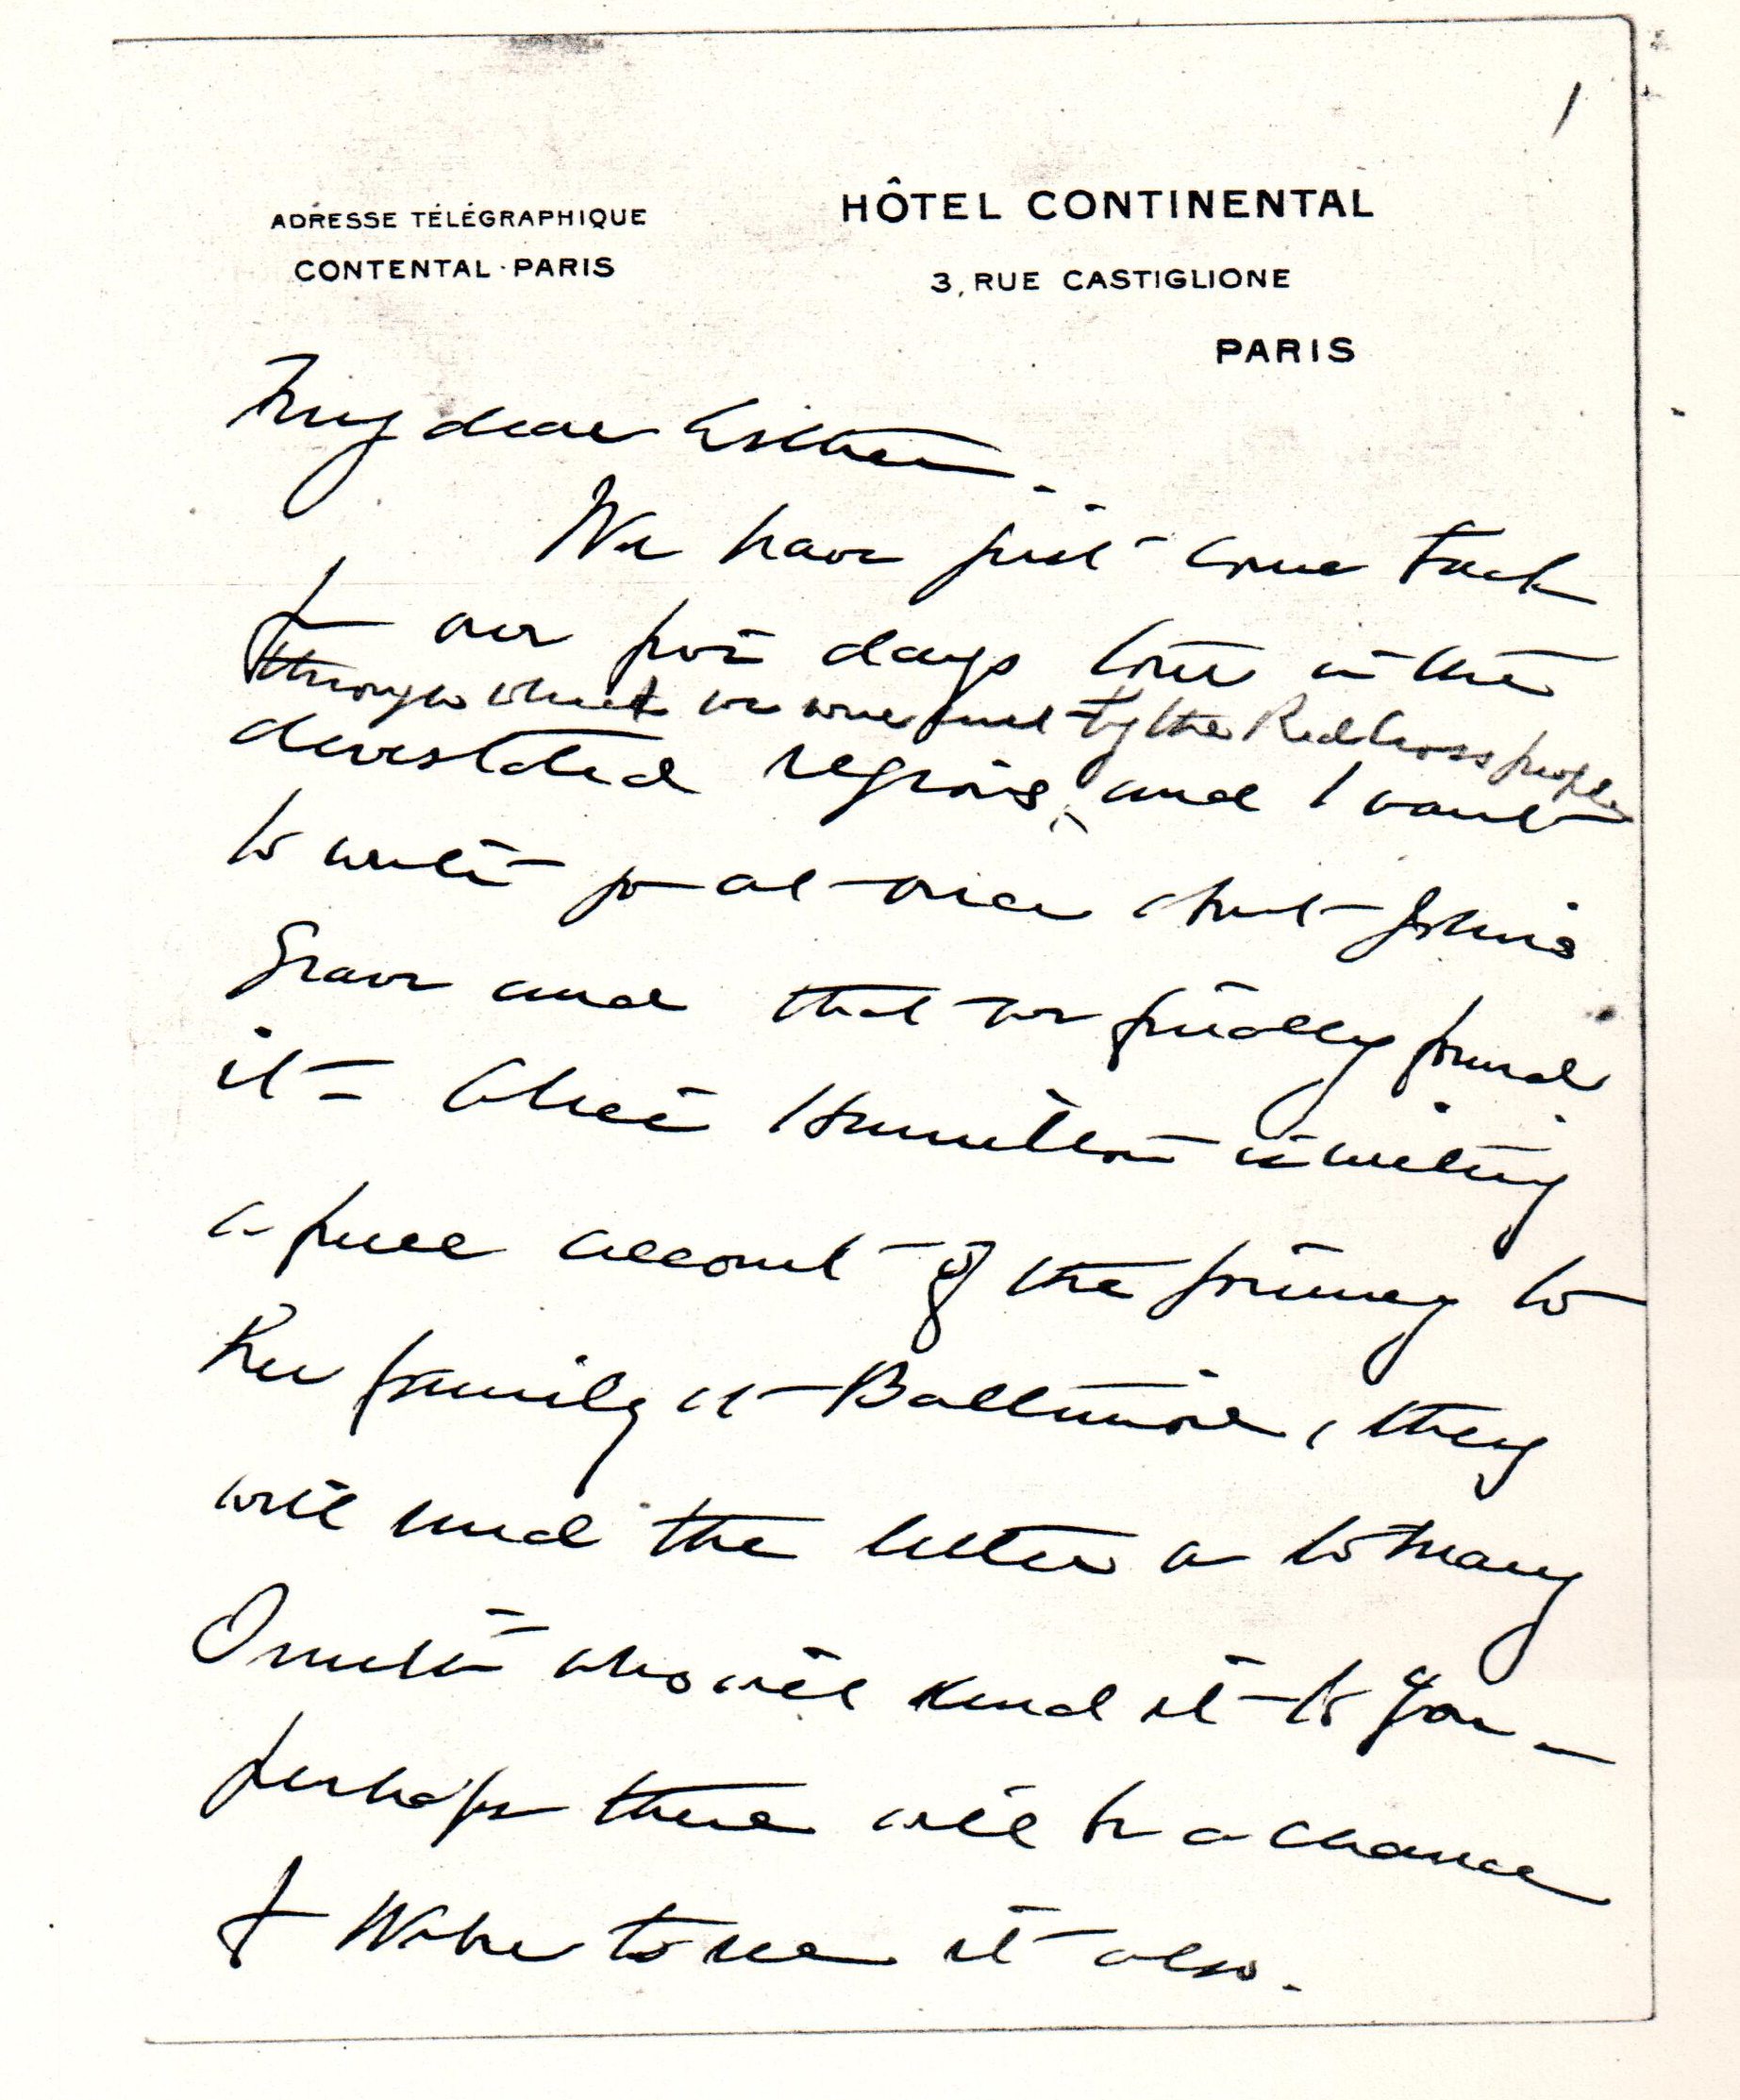 1
ADRESSE TÉLÉGRAPHIQUE
CONTENTAL · PARIS
HÔTEL CONTINENTAL
3, RUE CASTIGLIONE
PARIS
My dear Esther -
We have just come back
from our five days tour in the
through which we were sent by the Red Cross people
devastated regions, and I want
to write you at once about John's
grave and that we finally found
it - Alice Hamilton is writing
a full account of the journey to
her family at Baltimore, they
will send the letter on to Mary
Smith who will send it to you -
perhaps there will be a chance
for Weber to see it also.